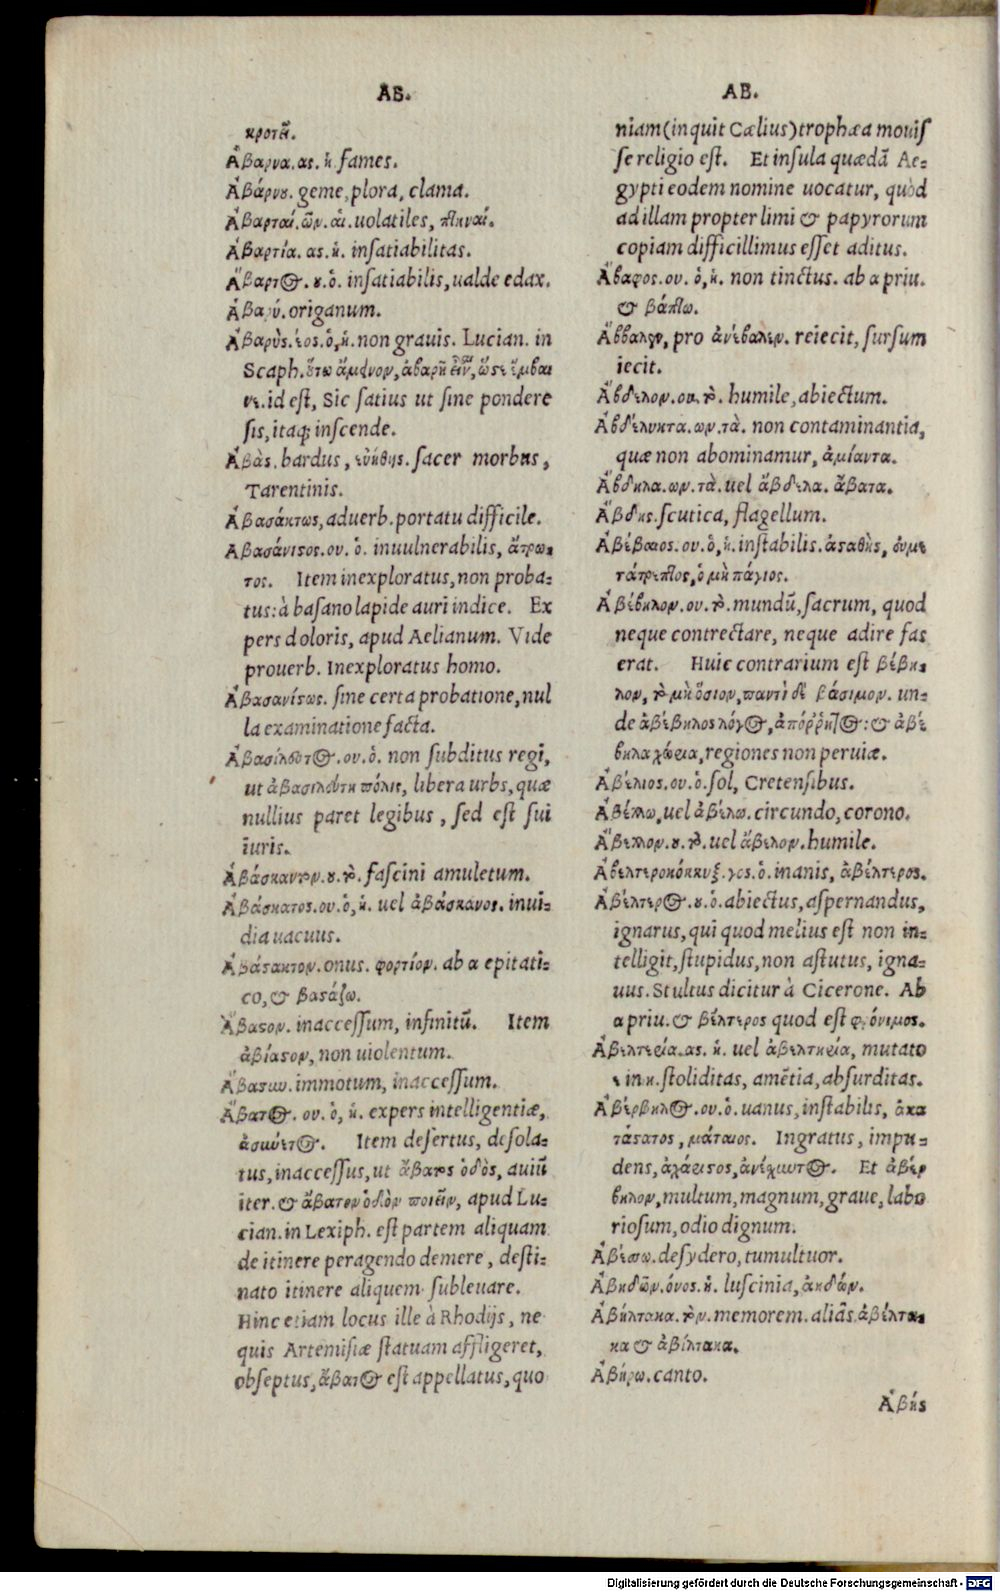 AB.
κροτεῖ.
Ἄβαρνα.ας.ἡ.fames.
Ἀβάρνου. geme, plora, clama.
Ἀβαρταί.ῶν.αἱ.uolatiles, πτηναί.
Ἀβαρτία. ας.ἡ. insatiabilitas.
Ἄβαρτος. ου.ὁ. insatiabilis, ualde edax.
Ἀβαρύ. origanum.
Ἀβαρὺς.έος.ὁ,ἡ.non grauis. Lucian. in
Scaph.οὕτω ἄμεινον, ἀβαρῆ εἶναι, ὥστε ἔμβαι
νε.id est, Sic satius ut sine pondere
sis, itaq; inscende.
Ἀβὰς. bardus, εὐήθης. sacer morbus,
Tarentinis.
Ἀβασάκτως, aduerb. portatu difficile.
Ἀβασάνιστος.ου. ὁ. inuulnerabilis, ἄτρω-
τος. Item inexploratus, non proba-
tus: à basano lapide auri indice. Ex
pers doloris, apud Aelianum. Vide
prouerb. Inexploratus homo.
Ἀβασανίστως. sine certa probatione, nul
la examinatione facta.
Ἀβασίλευτος.ου.ὁ. non subditus regi,
ut ἀβασιλεύτη πόλις, libera urbs, quæ
nullius paret legibus, sed est sui
iuris.
Ἀβάσκαντον.ου.τὸ. fascini amuletum.
Ἀβάσκατος.ου.ὁ,ἡ. uel ἀβάσκανος. inui-
dia uacuus.
Ἀβάστακτον. onus. φορτίον. ab α epitati-
co, & βαστάζω.
Ἄβαστον. inaccessum, infinitũ. Item
ἀβίαστον, non uiolentum.
Ἄβατον. immotum, inaccessum.
Ἄβατος. ου. ὁ, ἡ. expers intelligentiæ,
ἀσύνετος. Item desertus, desola-
tus, inaccessus, ut ἄβατος ὁδὸς, auiũ
iter. & ἄβατον ὁδὸν ποιεῖν, apud Lu-
cian. in Lexiph. est partem aliquam
de itinere peragendo demere, desti-
nato itinere aliquem subleuare.
Hinc etiam locus ille à Rhodijs, ne
quis Artemisiæ statuam affligeret,
obseptus, ἄβατος est appellatus, quo
AB.
niam (inquit Cælius) trophæa mouis
se religio est. Et insula quædã Ae-
gypti eodem nomine uocatur, quòd
ad illam propter limi & papyrorum
copiam difficillimus esset aditus.
Ἄβαφος.ου. ὁ, ἡ. non tinctus. ab α priu.
& βάπτω.
Ἄββαλεν, pro ἀνέβαλεν. reiecit, sursum
iecit.
Ἄβδελον.ου.τὸ. humile, abiectum.
Ἀβδέλυκτα.ων.τὰ. non contaminantia,
quæ non abominamur, ἀμίαντα.
Ἄβδηλα.ων.τὰ.uel ἄβδελα. ἄβατα.
Ἄβδης.scutica, flagellum.
Ἀβέβαιος.ου.ὁ,ἡ.instabilis. ἀσταθὴς, εὐμε
τάτρεπτος, ὁ μὴ πάγιος.
Ἀβέβηλον.ου.τὸ.mundũ, sacrum, quod
neque contrectare, neque adire fas
erat. Huic contrarium est βέβη-
λον, τὸ μὴ ὅσιον, παντὶ δὲ βάσιμον. un-
de ἀβέβηλος λόγος, ἀπόῤῥητος: & ἀβέ
βηλα χωρία, regiones non peruiæ.
Ἀβέλιος.ου.ὁ.sol, Cretensibus.
Ἀβέλλω, uel ἀβέλω. circundo, corono.
Ἄβελλον.ου.τὸ.uel ἄβελον.humile.
Ἀβελτεροκόκκυξ.γος.ὁ.inanis, ἀβέλτερος.
Ἀβέλτερος.ου.ὁ.abiectus, aspernandus,
ignarus, qui quod melius est non in-
telligit, stupidus, non astutus, igna-
uus. Stultus dicitur à Cicerone. Ab
α priu. & βέλτερος quod est φρόνιμος.
Ἀβελτερία.ας. ἡ. uel ἀβελτηρία, mutato
ε in η. stoliditas, amẽtia, absurditas.
Ἀβέρβηλος.ου.ὁ.uanus, instabilis, ἀκα
τάστατος, μάταιος. Ingratus, impu-
dens, ἀχάριστος, ἀναίσχυντος. Et ἀβέρ
βηλον, multum, magnum, graue, labo
riosum, odio dignum.
Ἀβέσσω. desydero, tumultuor.
Ἀβηδῶν.όνος.ἡ. luscinia, ἀηδών.
Ἀβήλτακα. τὸν. memorem. aliâs ἀβέλτα-
κα & ἀβίλτακα.
Ἀβήρω. canto.
Ἀβής
Digitalisierung gefördert durch die Deutsche Forschungsgemeinschaft - DFG